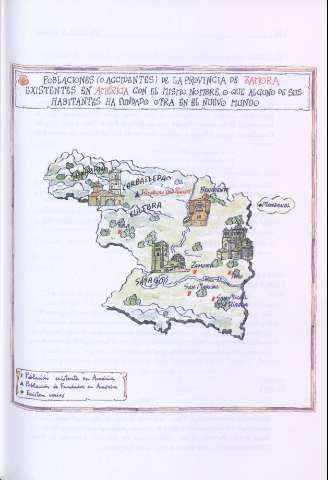 POBLACIONES (O ACCIDENTES) DE LA PROVINCIA DE ZAMORA
EXISTENTES EN AMÉRICA CON EL MISMO NOMBRE, O QUE ALGUNO DE SUS
HABITANTES HA FUNDADO OTRA EN EL NUEVO MUNDO
SANABRIA
CARBALLEDA
Benavente
CULEBRA
Zamora
Toro
SAYAGO
San Marcial
Población existente en América
Población de Fundador en América
Existen varias